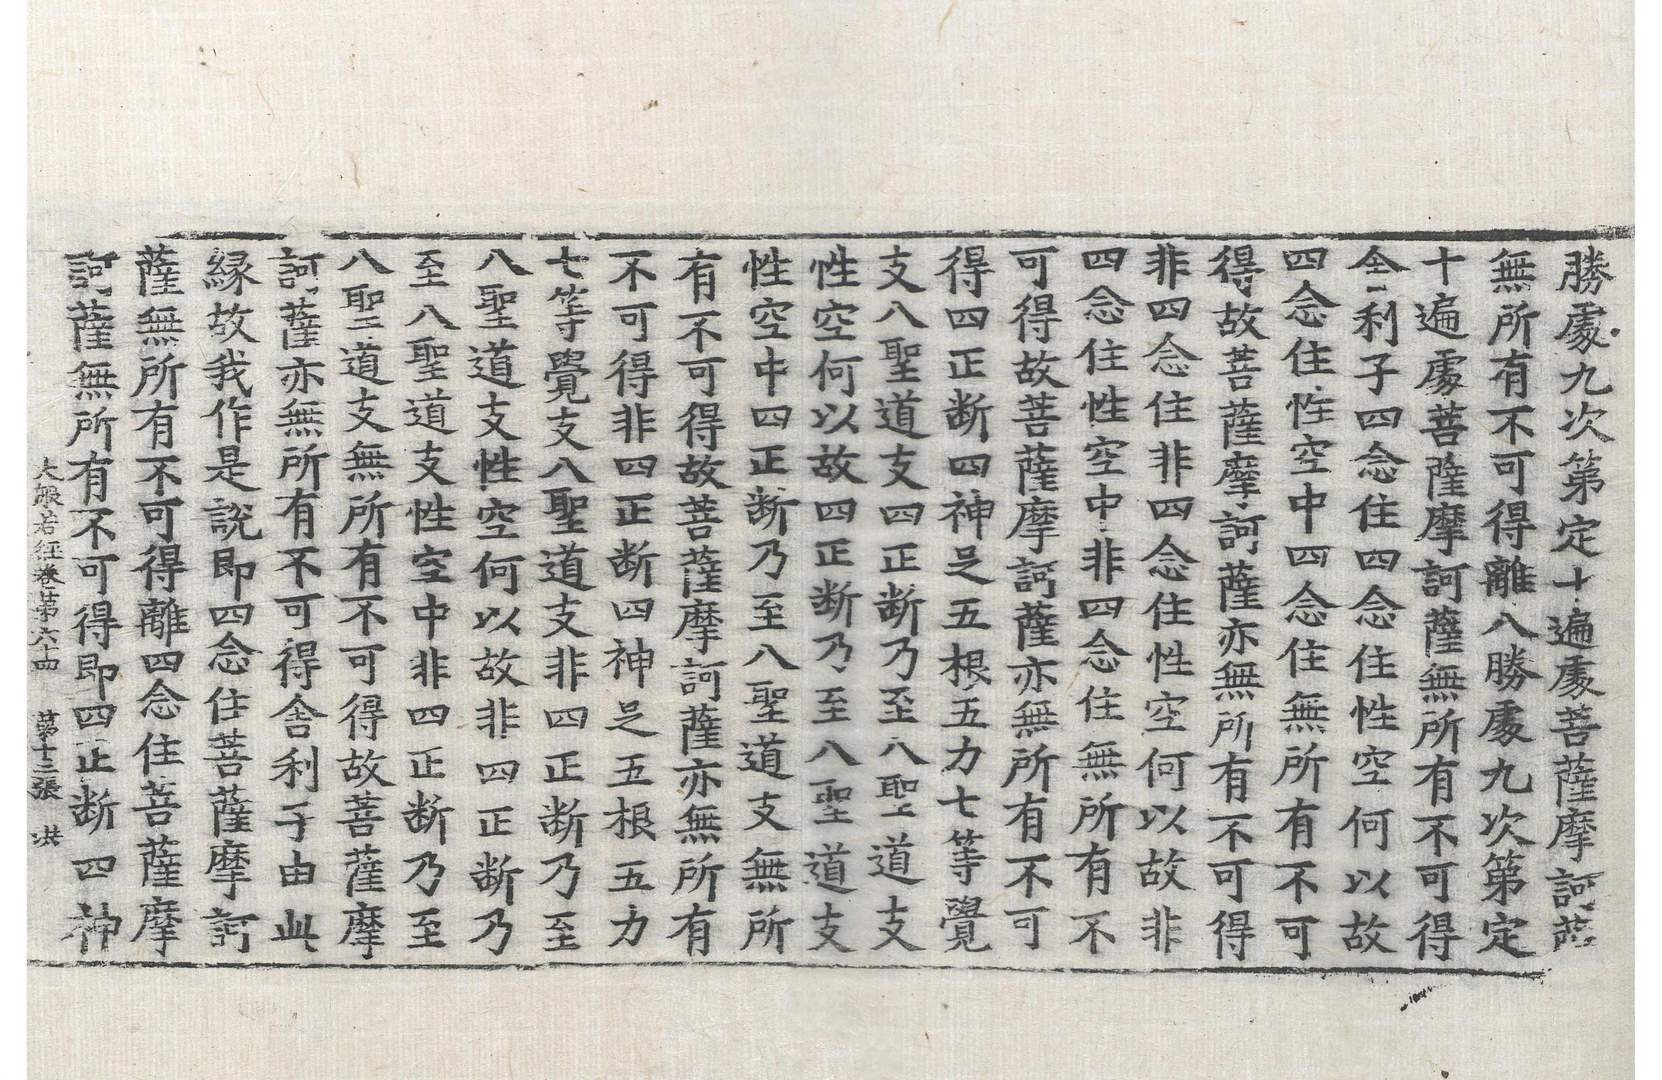 勝處九次第定十遍處菩薩摩訶薩
無所有不可得離八勝處九次第定
十遍處菩薩摩訶薩無所有不可得
舍利子四念住四念住性空何以故
四念住性空中四念住無所有不可
得故菩薩摩訶薩亦無所有不可得
非四念住非四念住性空何以故非
四念住性空中非四念住無所有不
可得故菩薩摩訶薩亦無所有不可
得四正断四神足五根五力七等覺
支八聖道支四正断乃至八聖道支
性空何以故四正断乃至八聖道支
性空中四正断乃至八聖道支無所
有不可得故菩薩摩訶薩亦無所有
不可得非四正断四神足五根五力
七等覺支八聖道支非四正断乃至
八聖道支性空何以故非四正断乃
至八聖道支性空中非四正断乃至
八聖道支無所有不可得故菩薩摩
訶薩亦無所有不可得舍利子由此
縁故我作是說即四念住菩薩摩訶
薩無所有不可得離四念住菩薩摩
訶薩無所有不可得即四正断四神
大般若經卷第六十四 第十三張 洪